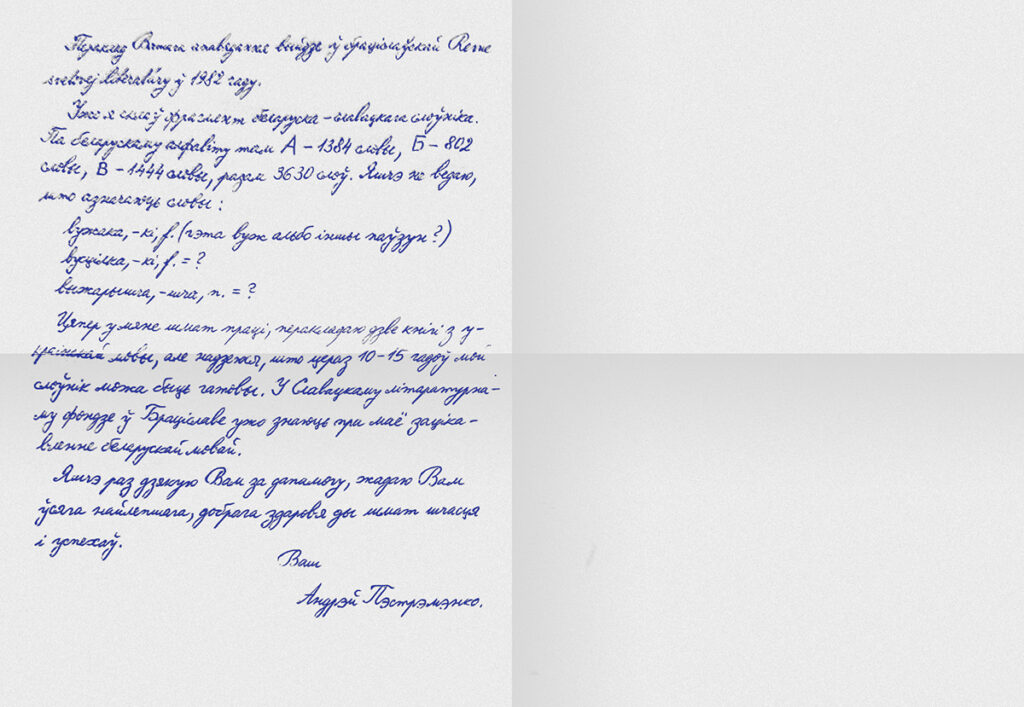 Пераклад Вашага апавядання выйдзе ў браціслаўскай Revue
svetovej literatúry ў 1982 гаду.
Ужо я склаў фрагмент беларуска-славацкага слоўніка.
Па беларускаму алфавіту там А – 1384 словы, Б – 802
словы, В – 1444 словы, разам 3630 слоў. Яшчэ не ведаю,
што азначаюць словы:
вужака, -кі, f. (гэта вуж альбо іншы паўзун?)
вуцілка, -кі, f. = ?
выжарышча, -шча, n. = ?
Цяпер у мяне шмат працы, перакладаю дзве кнігі з у-
краінскай мовы, але надзеюся, што цераз 10-15 гадоў мой
слоўнік можа быць гатовы. У Славацкаму літаратурна-
му фондзе ў Браціславе ужо знаюць пра маё заціка-
вленне беларускай мовай.
Яшчэ раз дзякую Вам за дапамогу, жадаю Вам
ўсяго найлепшага, добрага здароўя ды шмат шчасця
і успехаў.
Ваш
Андрэй Пэстрэмэнко.